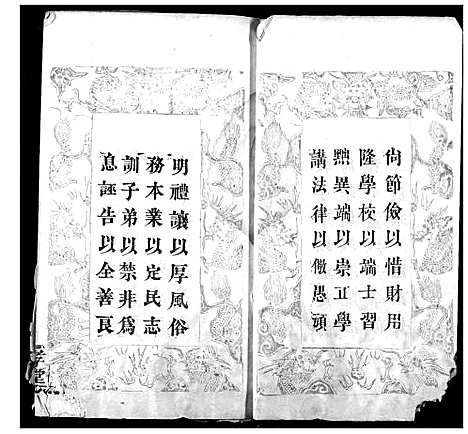 尙節儉以惜財用
隆學校以端士習
黜異端以崇正學
講法律以儆愚頑
明禮讓以厚風俗
務本業以定民志
訓子弟以禁非爲
息誣告以全善良